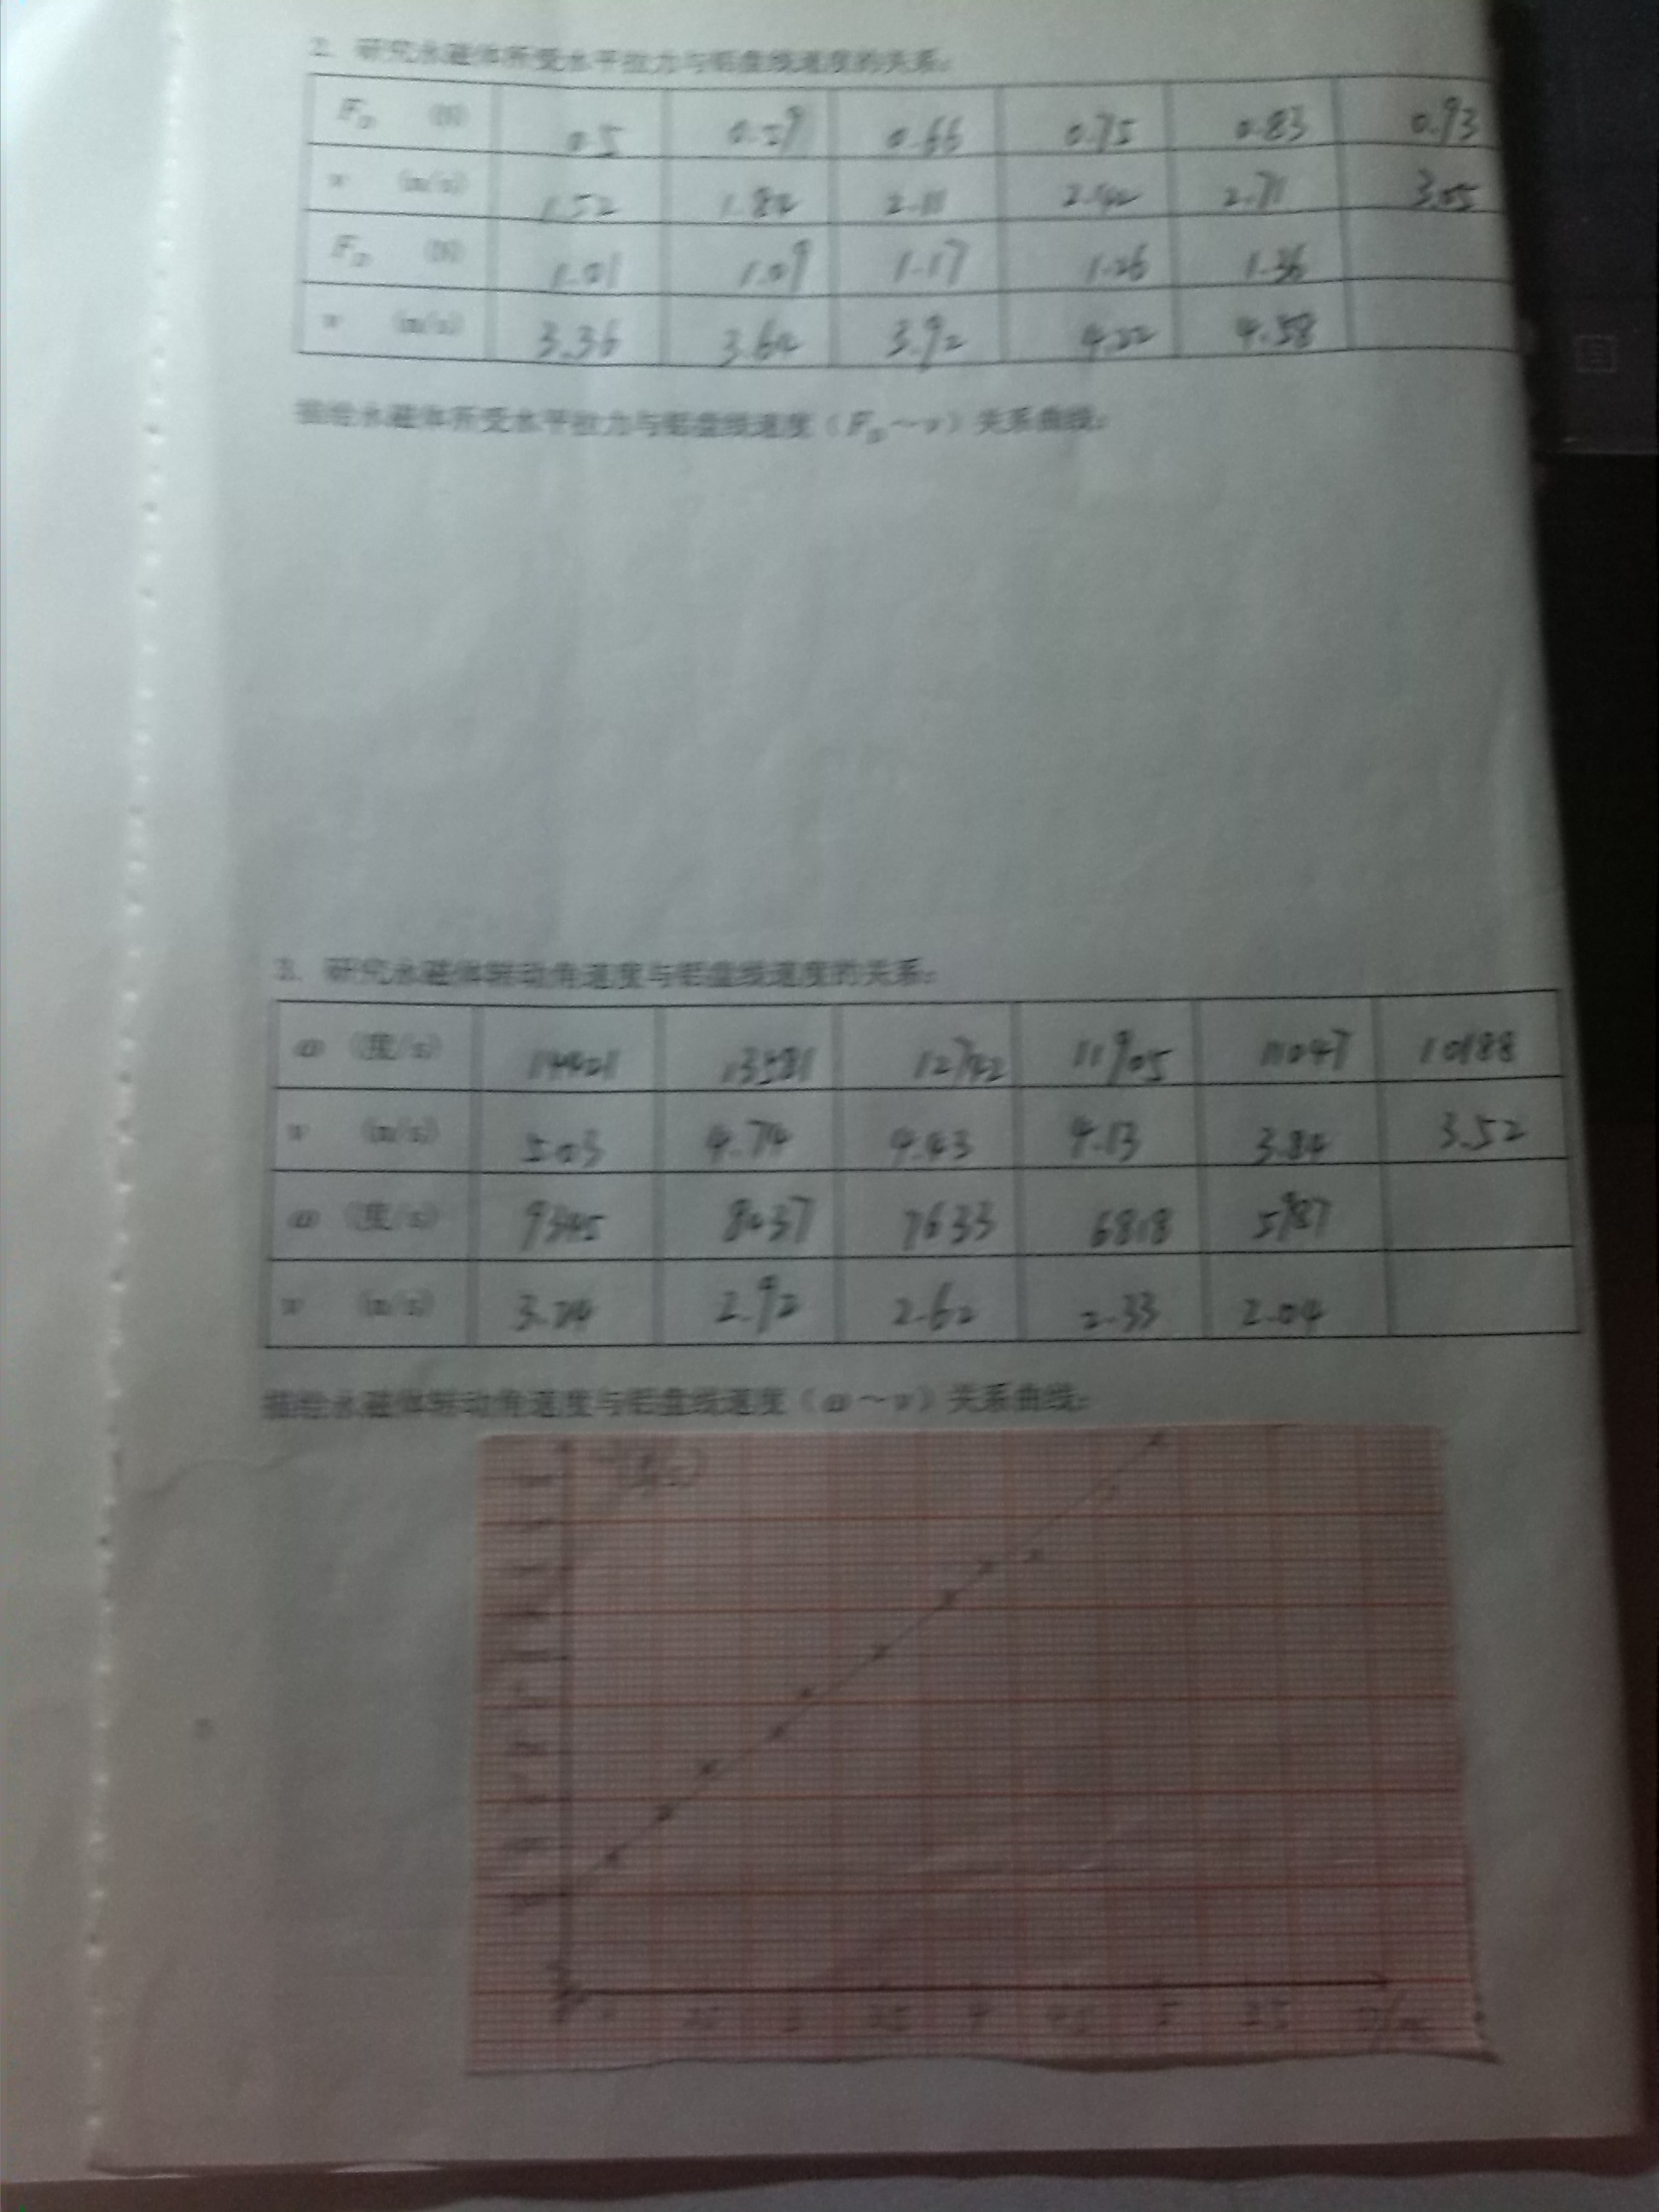 2、研究永磁体所受水平拉力与铝盘线速度的关系：
F_D (N) 0.5 0.59 0.66 0.75 0.83 0.93
v (m/s) 1.52 1.82 2.11 2.42 2.71 3.05
F_D (N) 1.01 1.09 1.17 1.26 1.36
v (m/s) 3.36 3.64 3.92 4.22 4.58
描绘永磁体所受水平拉力与铝盘线速度（F_D～v）关系曲线：
3、研究永磁体转动角速度与铝盘线速度的关系：
ω (度/s) 14421 13581 12742 11905 11047 10188
v (m/s) 5.03 4.74 4.43 4.13 3.84 3.52
ω (度/s) 9345 8437 7633 6818 5987
v (m/s) 3.24 2.92 2.62 2.33 2.04
描绘永磁体转动角速度与铝盘线速度（ω～v）关系曲线：
2.5 3 3.5 4 4.5 5